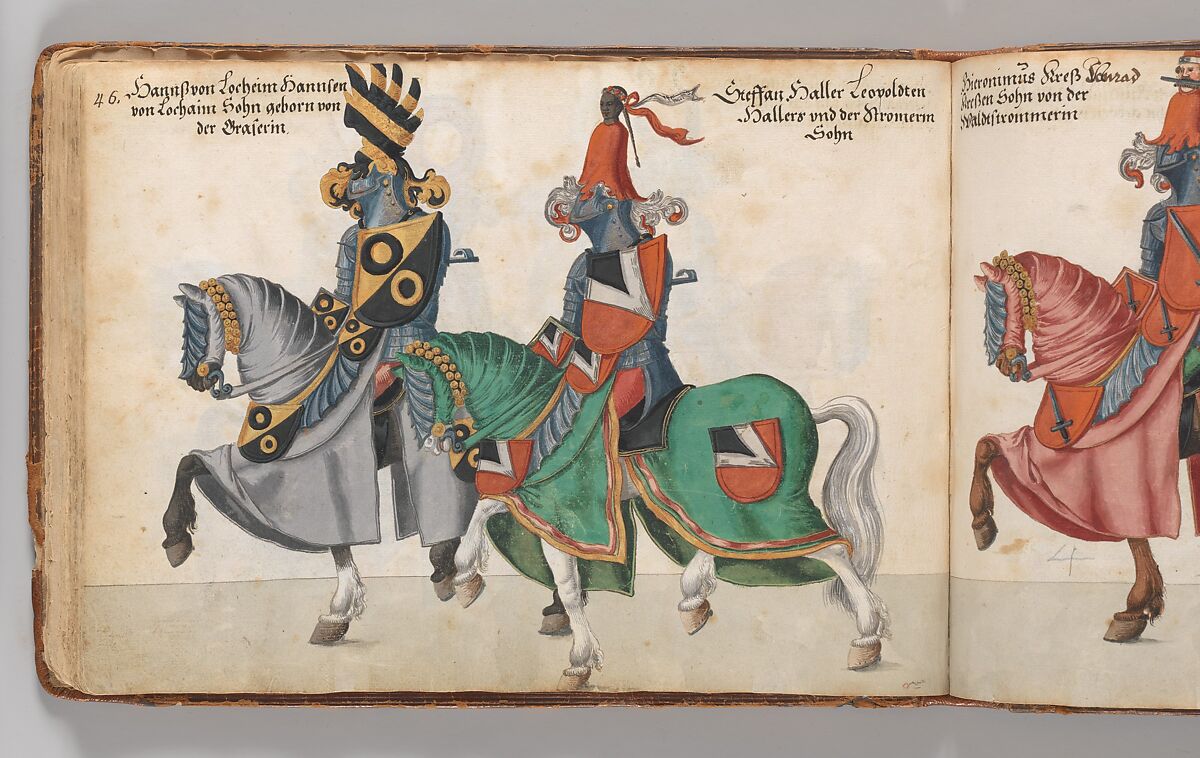 46. Hannß von Locheim Hannsen
von Lochaim Sohn geborn von
der Graserin
Steffan Haller Leopoldten
Hallers vnd der Stromerin
Sohn
Hieronimus Kreß Conrad
Kreßen Sohn von der
Waldtstrommerin